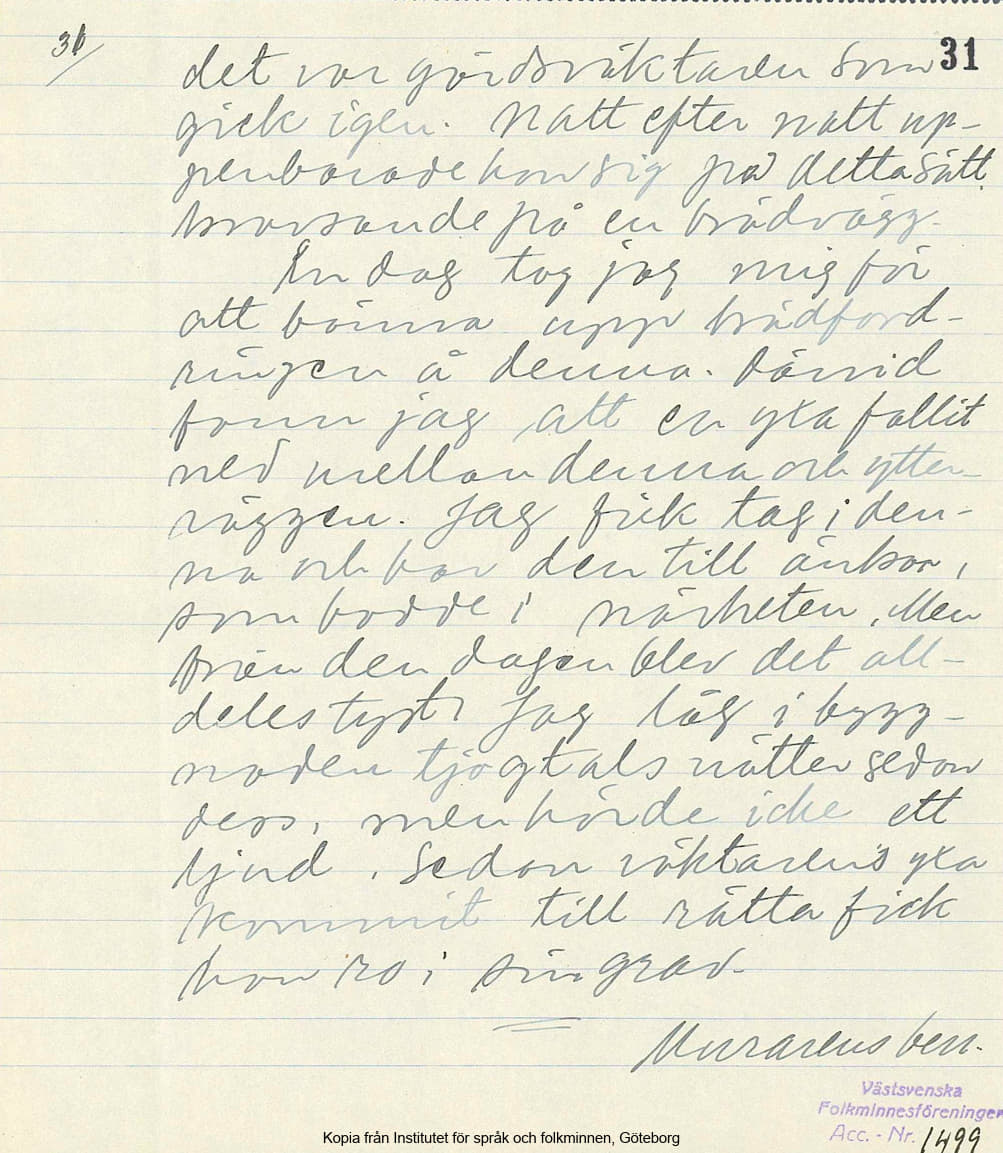 31/
31
det var gårdsväktaren som
gick igen. Natt efter natt up-
penbarade han sig på detta sätt
knarsande på en brädvägg.
En dag tog jag mig för
att bänna upp brädford-
ringen å denna. Därvid
fann jag att en yxa fallit
ned mellan denna och ytter-
väggen. Jag fick tag i den-
na och bar den till änkan,
som bodde i närheten. Men
från den dagen blev det all-
deles tyst. Jag låg i bygg-
naden tjogtals nätter sedan
dess, men hörde icke ett
ljud. Sedan väktarens yxa
kommit till rätta fick
han ro i sin grav.
Murarens ben.
Västsvenska
Folkminnesföreningen
Acc. - Nr. 1499
Kopia från Institutet för språk och folkminnen, Göteborg